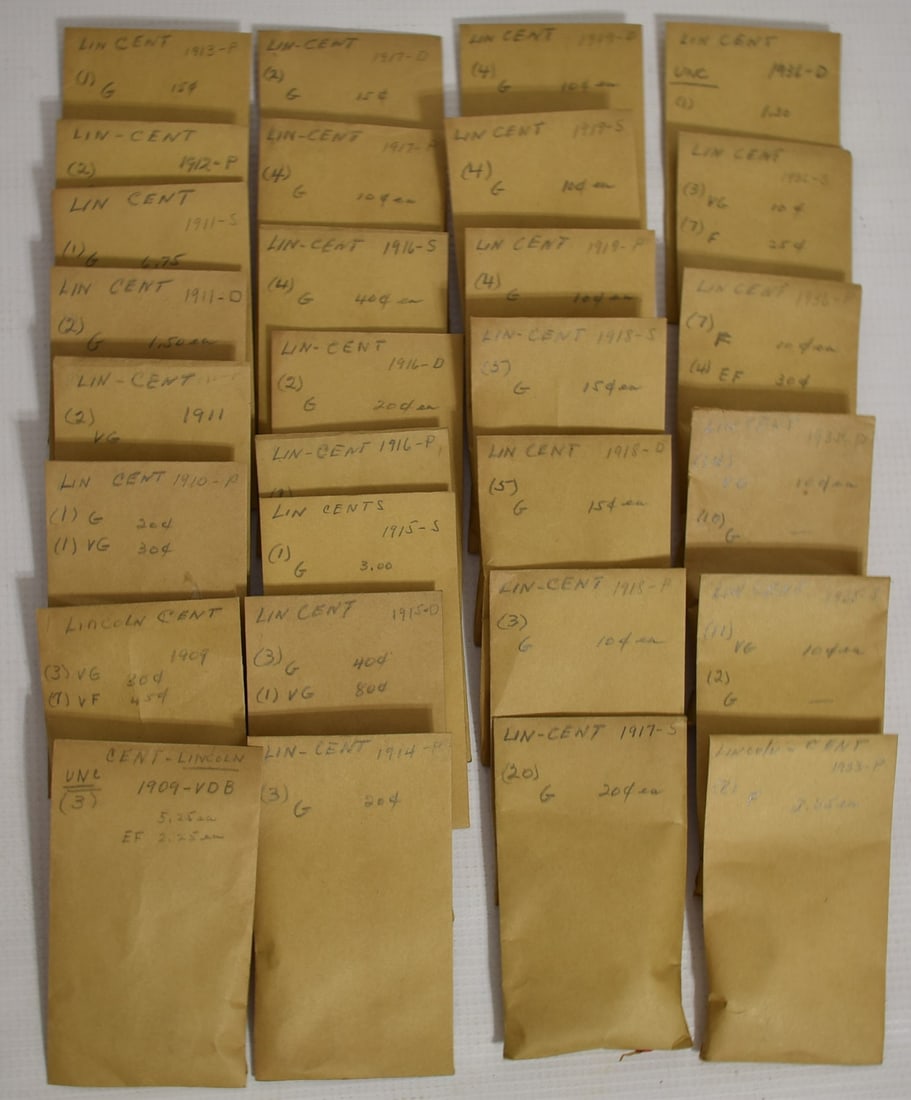 LIN CENT 1913-P
(1) G 15¢
LIN-CENT
(2) 1912-P
LIN CENT
1911-S
(1) G 6.75
LIN CENT 1911-D
(2) G 1.50 ea
LIN-CENT
(2) 1911
VG
LIN CENT 1910-P
(1) G 20¢
(1) VG 30¢
LINCOLN CENT
1909
(3) VG 30¢
VF 45¢
CENT-LINCOLN
UNC
(3) 1909-VDB
5.25 ea
EF 2.25 ea
LIN-CENT 1917-D
(2) G 15¢
LIN-CENT 1917-P
(4) G 10¢ ea
LIN-CENT 1916-S
(4) G 40¢ ea
LIN-CENT
1916-D
(2) G 20¢ ea
LIN-CENT 1916-P
LIN CENTS
1915-S
(1) G 3.00
LIN CENT 1915-D
(3) G 40¢
(1) VG 80¢
LIN-CENT 1914-P
(3) G 20¢
LIN CENT 1919-D
(4) G 10¢ ea
LIN CENT 1919-S
(4) G 10¢ ea
LIN CENT 1919-P
(4) G 10¢ ea
LIN-CENT 1918-S
G 15¢ ea
LIN CENT 1918-D
(5) G 15¢ ea
LIN-CENT 1918-P
(3) G 10¢ ea
LIN-CENT 1917-S
(20) G 20¢ ea
LIN CENT
UNC 1936-D
(1) 1.20
LIN CENT
(3) VG 10¢
(7) F 25¢
LIN CENT
(7) F 10¢ ea
(4) EF 30¢
VG 10¢ ea
(10) G —
(11) VG 10¢ ea
(2) G —
LINCOLN-CENT
1933-P